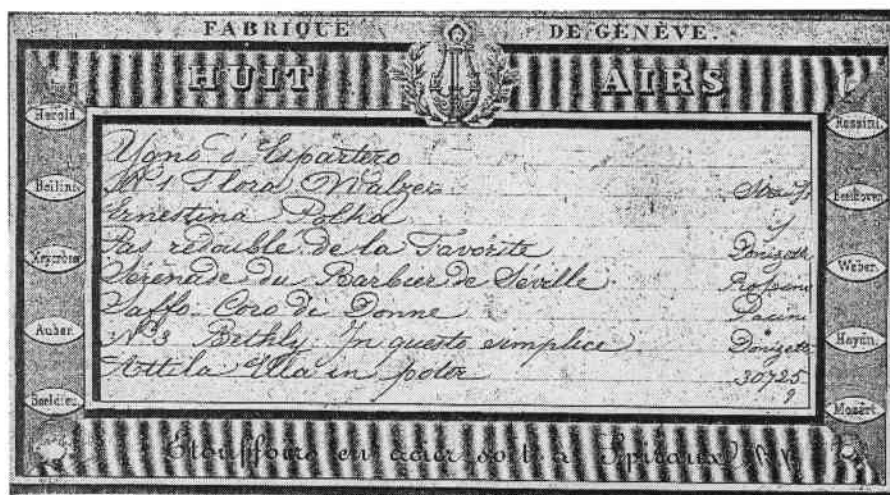 FABRIQUE DE GENÈVE.
HUIT AIRS
Herold.
Bellini.
Meyerbeer
Auber.
Boeldieu.
Rossini.
Beethoven
Weber.
Haydn.
Mozart.
Ygno d'Espartero
No 1 Flora Walzer Strauss
Ernestina Polka
Pas redoublé de la Favorite Donizetti
Sérénade du Barbier de Séville Rossini
Saffo Coro di Donne Pacini
No 3 Bethly In questo simplice Donizetti
Attila Ella in poter 30725
9
Etouffoirs en acier soit à Spiraux